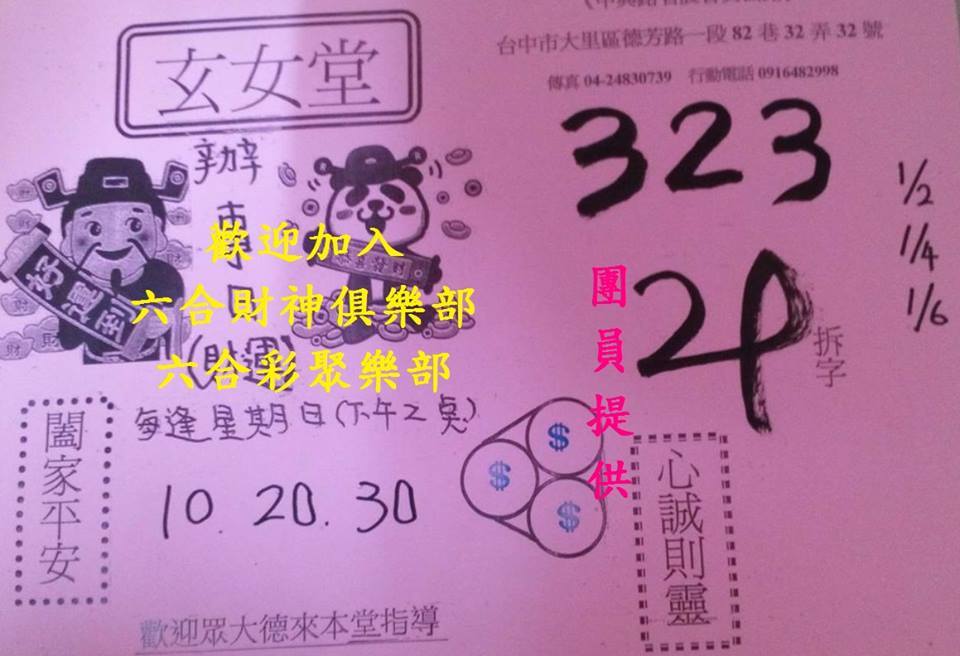 玄女堂
台中市大里區德芳路一段 82 巷 32 弄 32 號
傳真 04-24830739 行動電話 0916482998
辦
323
1/2
1/4
1/6
24
拆字
好運到
歡迎加入
六合財神俱樂部
六合彩聚樂部
(財運)
團員提供
每逢星期日(下午2奌)
10.20.30
闔家平安
$
$
$
心誠則靈
歡迎眾大德來本堂指導